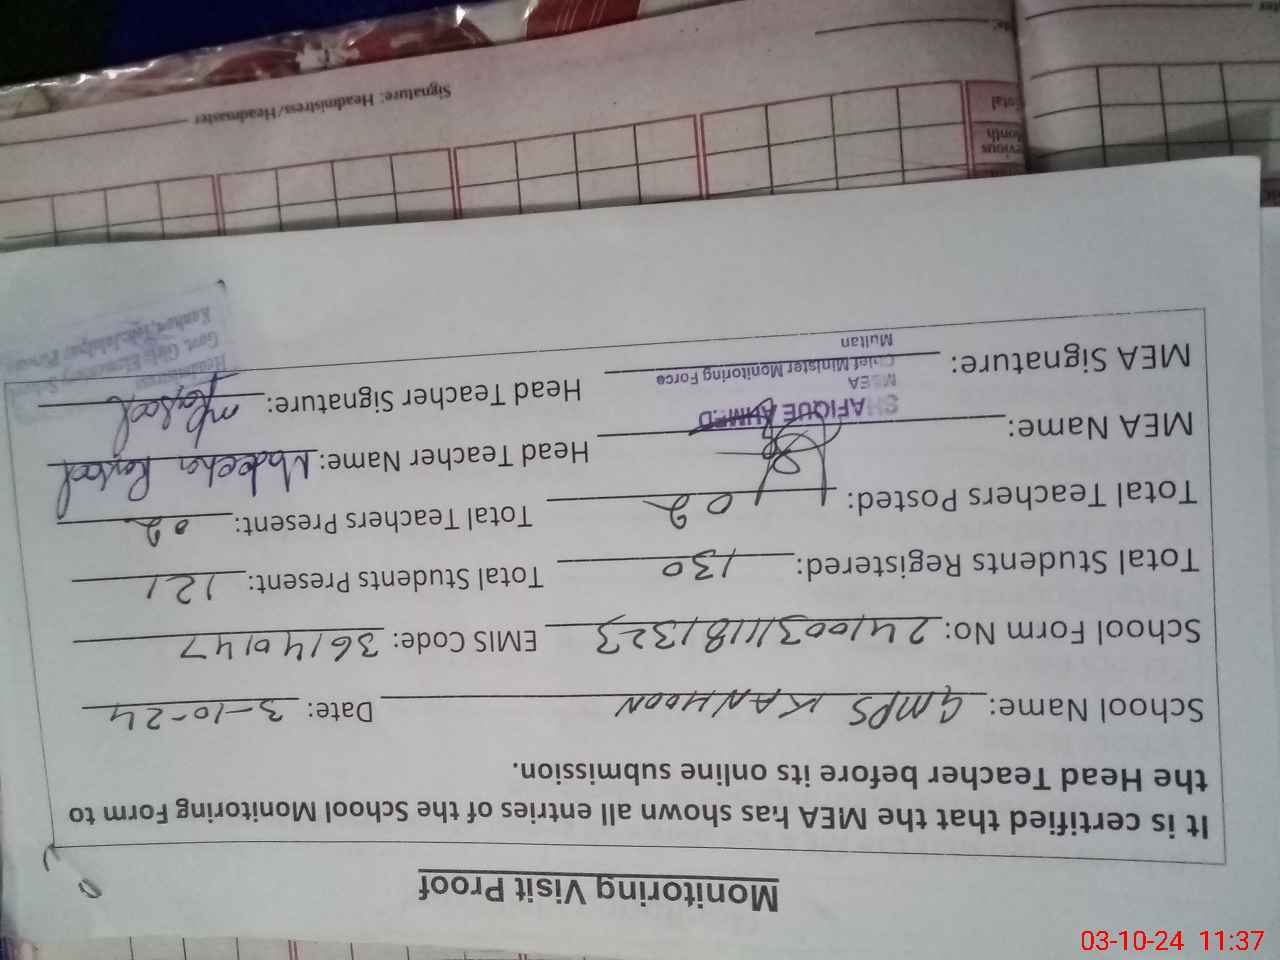 Monitoring Visit Proof
It is certified that the MEA has shown all entries of the School Monitoring Form to
the Head Teacher before its online submission.
School Name: GMPS KANHOON Date: 3-10-24
School Form No: 241003111181323 EMIS Code: 36140147
Total Students Registered: 130 Total Students Present: 121
Total Teachers Posted: 02 Total Teachers Present: 02
MEA Name: Head Teacher Name:
SHAFIQUE AHMED
MEA Signature: Head Teacher Signature:
MEA
Chief Minister Monitoring Force
Multan
Headmistress
Govt. Girls Elementary School
Signature: Headmistress/Headmaster
Total
Month
03-10-24 11:37